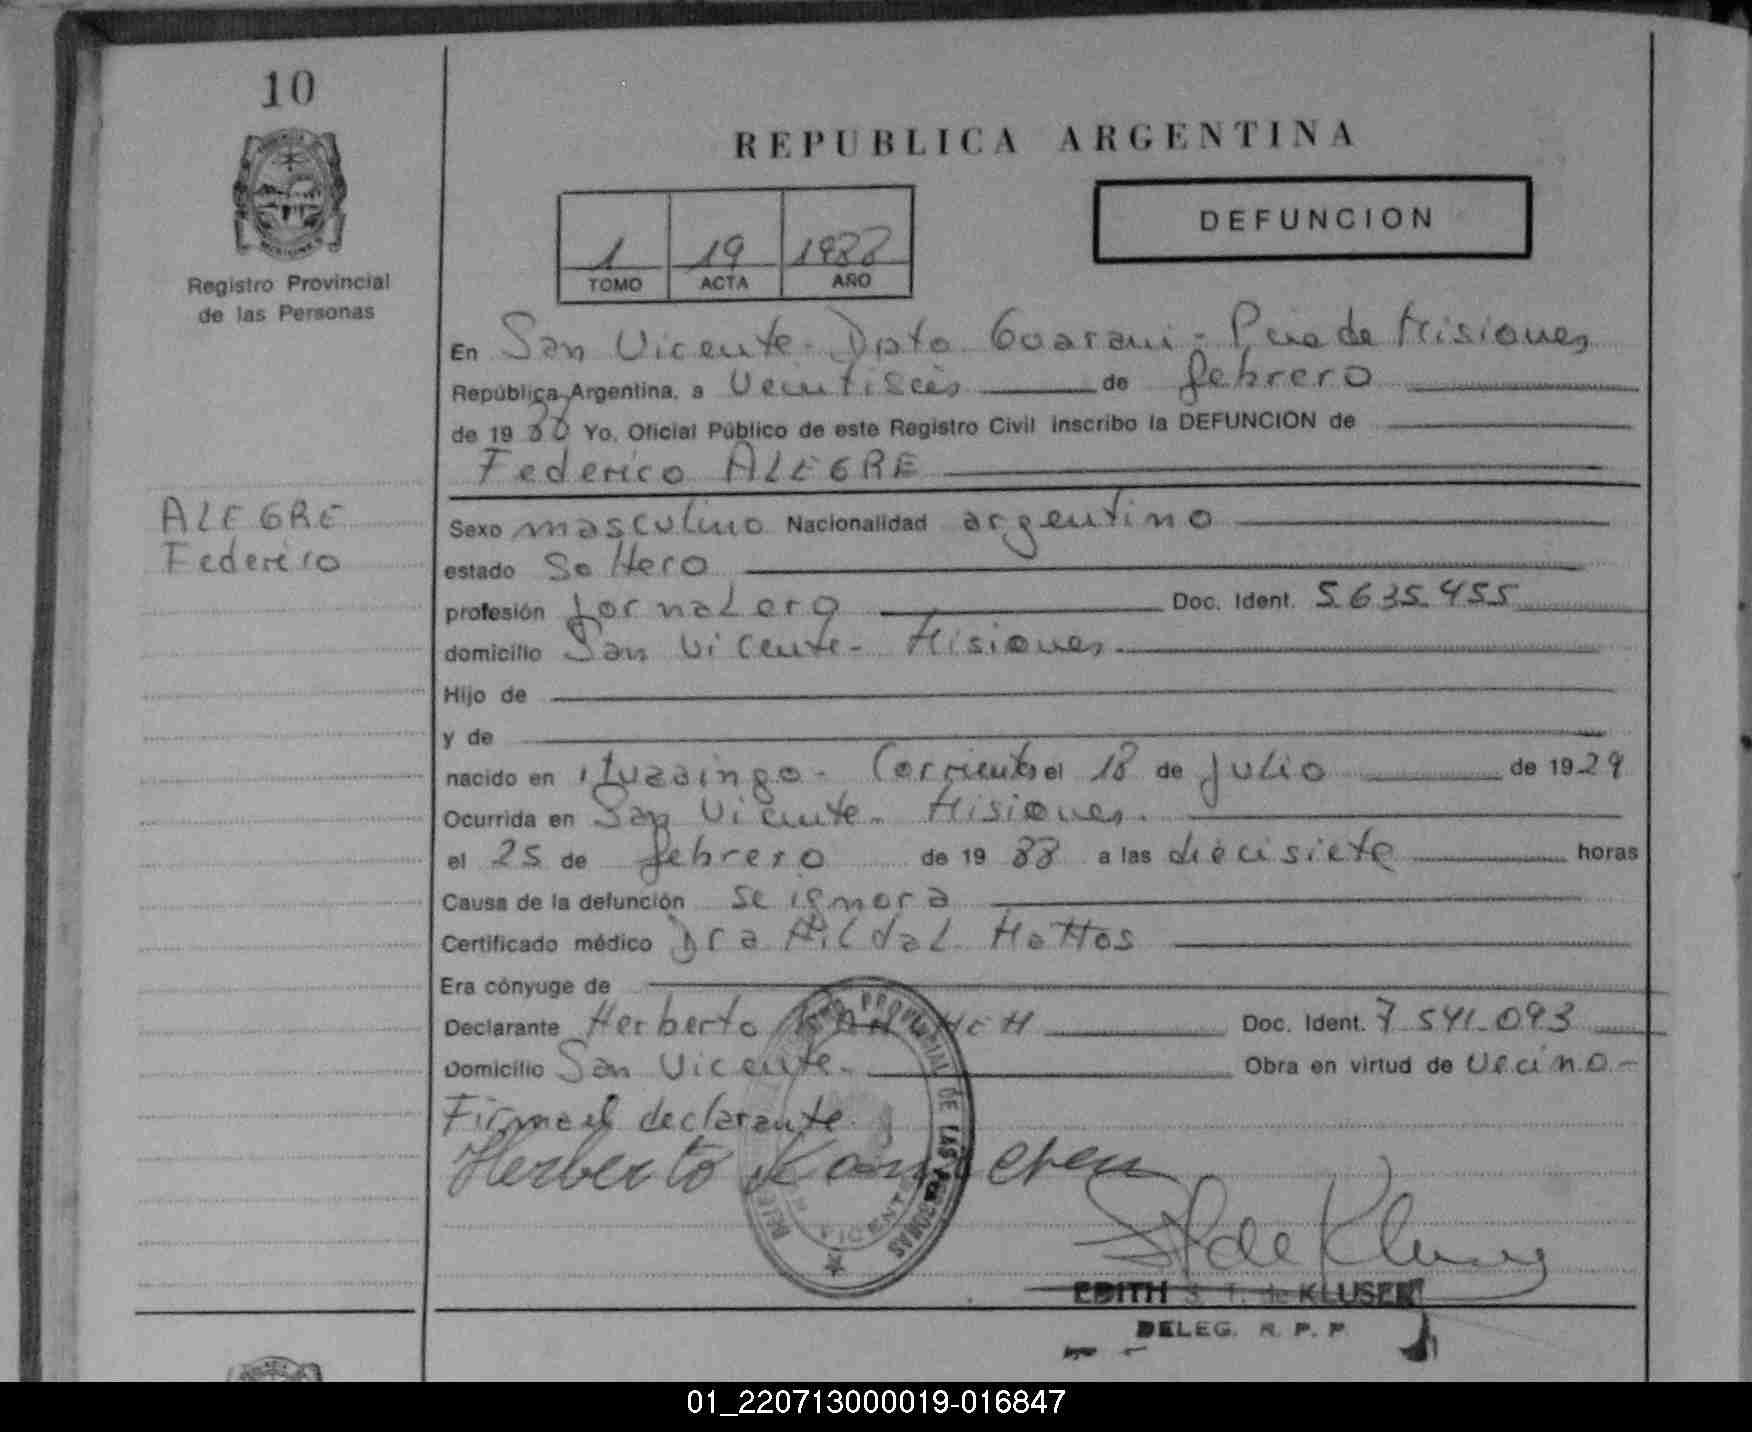 10
REPUBLICA ARGENTINA
DEFUNCION
1 19 1988
TOMO ACTA AÑO
Registro Provincial
de las Personas
En San Vicente - Dpto Guarani - Pcia de Misiones
República Argentina, a veintiseis de febrero
de 19 88 Yo, Oficial Público de este Registro Civil inscribo la DEFUNCION de
Federico ALEGRE
ALEGRE
Federico
Sexo masculino Nacionalidad argentino
estado Soltero
profesión Jornalero Doc. Ident. 5.635.455
domicilio San Vicente - Misiones
Hijo de
y de
nacido en ituzaingo - Corrientes el 18 de Julio de 1929
Ocurrida en San Vicente - Misiones.
el 25 de febrero de 19 88 a las diecisiete horas
Causa de la defunción se ignora
Certificado médico Dra Mildal Mattos
Era cónyuge de
Declarante Herberto Doc. Ident. 7.541.093
Domicilio San Vicente - Obra en virtud de vecino -
Firma el declarante
Herberto
REGISTRO PROVINCIAL DE LAS PERSONAS
VICENTE
EDITH S. T. de KLUSER
DELEG. R. P. P.
01_220713000019-016847